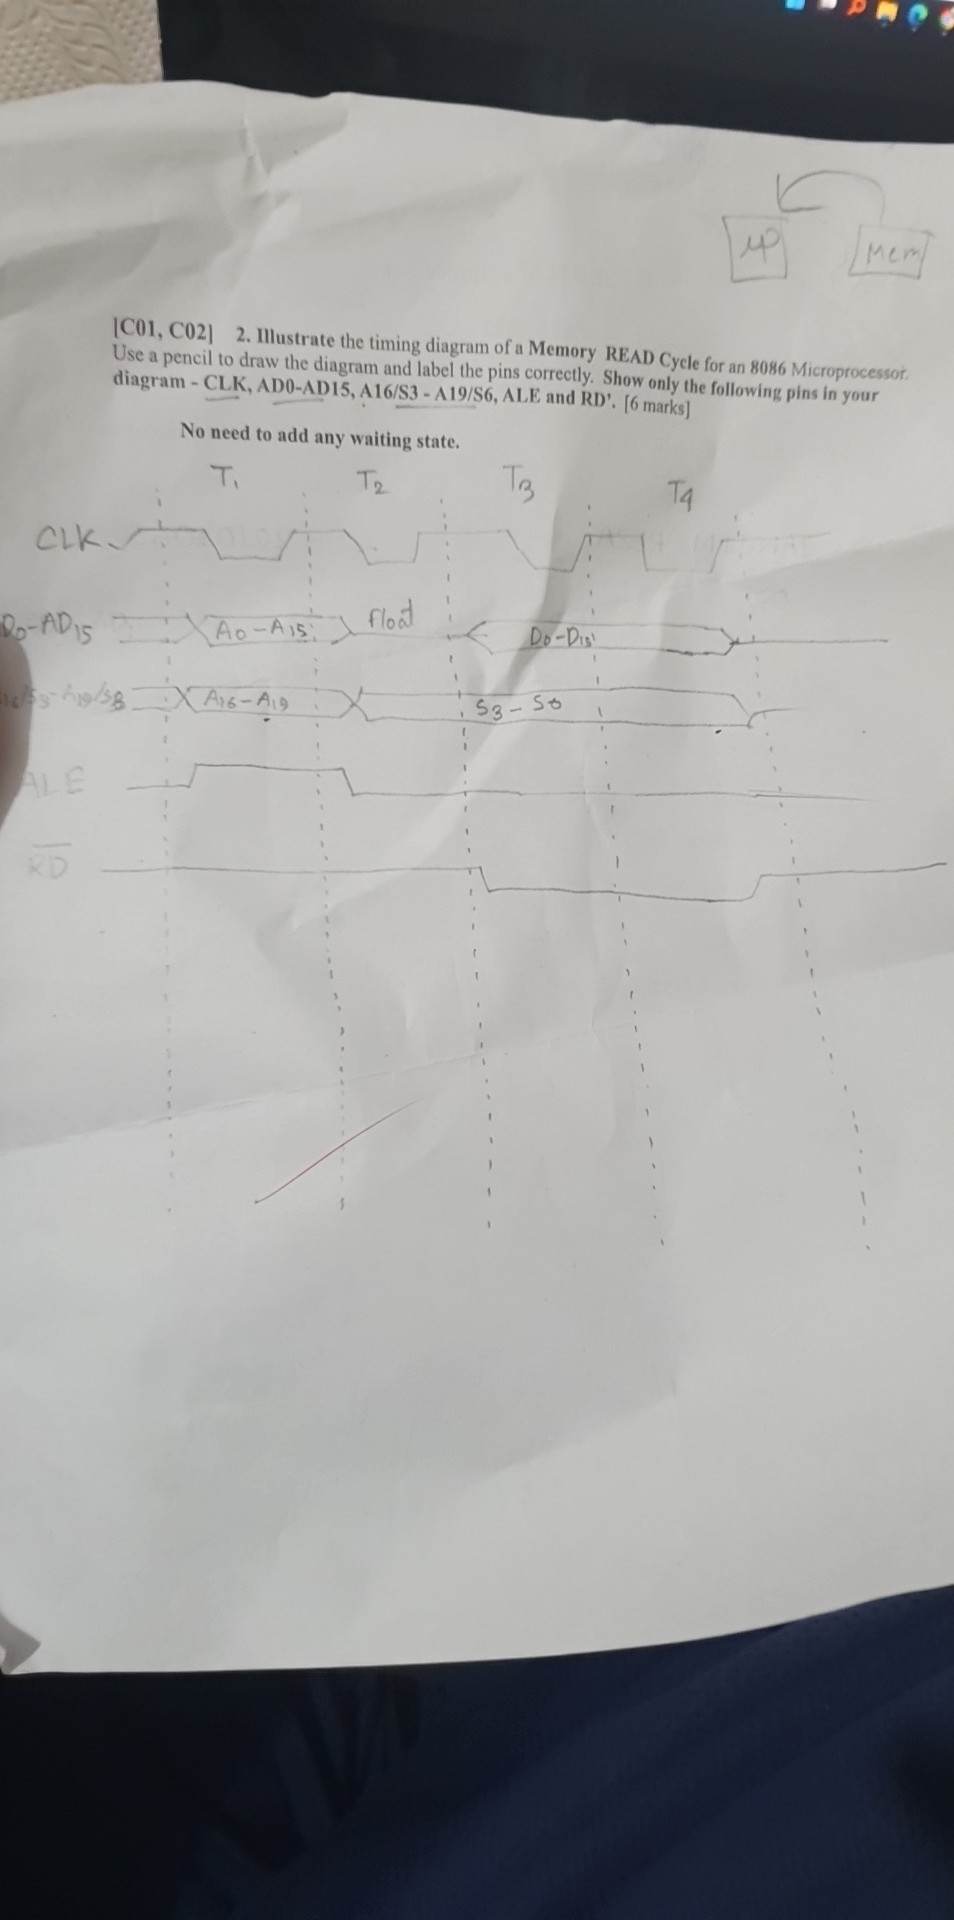 μP Mem
[C01, C02] 2. Illustrate the timing diagram of a Memory READ Cycle for an 8086 Microprocessor.
Use a pencil to draw the diagram and label the pins correctly. Show only the following pins in your
diagram - CLK, AD0-AD15, A16/S3 - A19/S6, ALE and RD'. [6 marks]
No need to add any waiting state.
T1 T2 T3 T4
CLK
D0-AD15 A0-A15 Float D0-D15
A16-A19 S3-S6
ALE
R̅D̅